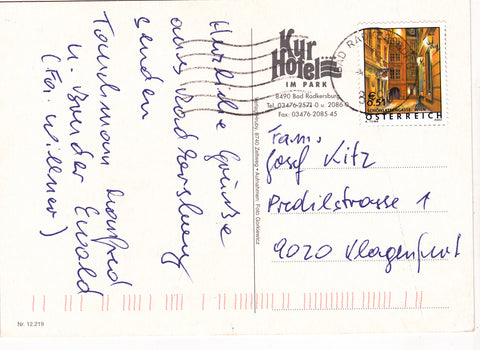 Herzliche Grüsse
aus Radkersburg
senden
Manfred
u. Bruder Ewald
(Fa. Willner)
Kur
Hotel
IM PARK
8490 Bad Radkersburg
Tel. 03476-2571 0 u. 2086 0
Fax: 03476-2085 45
€ 0,51
SCHÖNLATERNGASSE · WIEN
ÖSTERREICH
Fam.
Josef Kitz
Predilstrasse 1
9020 Klagenfurt
8740 Zeltweg • Aufnahmen: Foto Gorkiewicz
Nr. 12.219